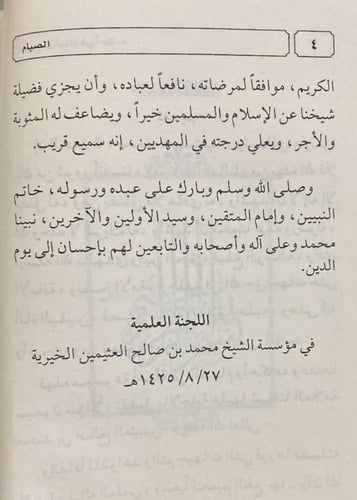 ٤
الصيام
الكريم، موافقاً لمرضاته، نافعاً لعباده، وأن يجزي فضيلة
شيخنا عن الإسلام والمسلمين خيراً، ويضاعف له المثوبة
والأجر، ويعلي درجته في المهديين، إنه سميع قريب.
وصلى الله وسلم وبارك على عبده ورسوله، خاتم
النبيين، وإمام المتقين، وسيد الأولين والآخرين، نبينا
محمد وعلى آله وأصحابه والتابعين لهم بإحسان إلى يوم
الدين.
اللجنة العلمية
في مؤسسة الشيخ محمد بن صالح العثيمين الخيرية
٢٧/٨/١٤٢٥هـ